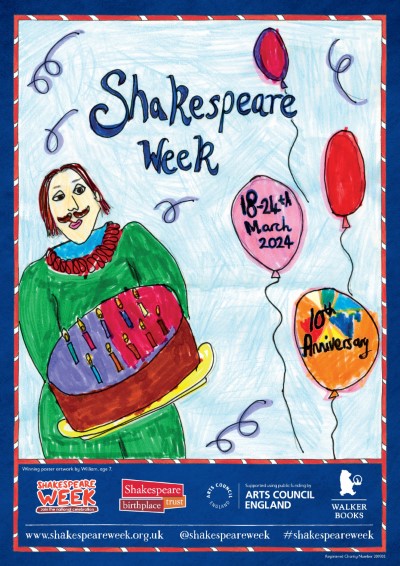 Shakespeare
Week
18-24th
March
2024
10th
Anniversary
Winning poster artwork by William, age 7.
SHAKESPEARE
WEEK
Join the national celebration
Shakespeare
birthplace trust
ARTS COUNCIL
ENGLAND
Supported using public funding by
ARTS COUNCIL
ENGLAND
WALKER
BOOKS
www.shakespeareweek.org.uk @shakespeareweek #shakespeareweek
Registered Charity Number